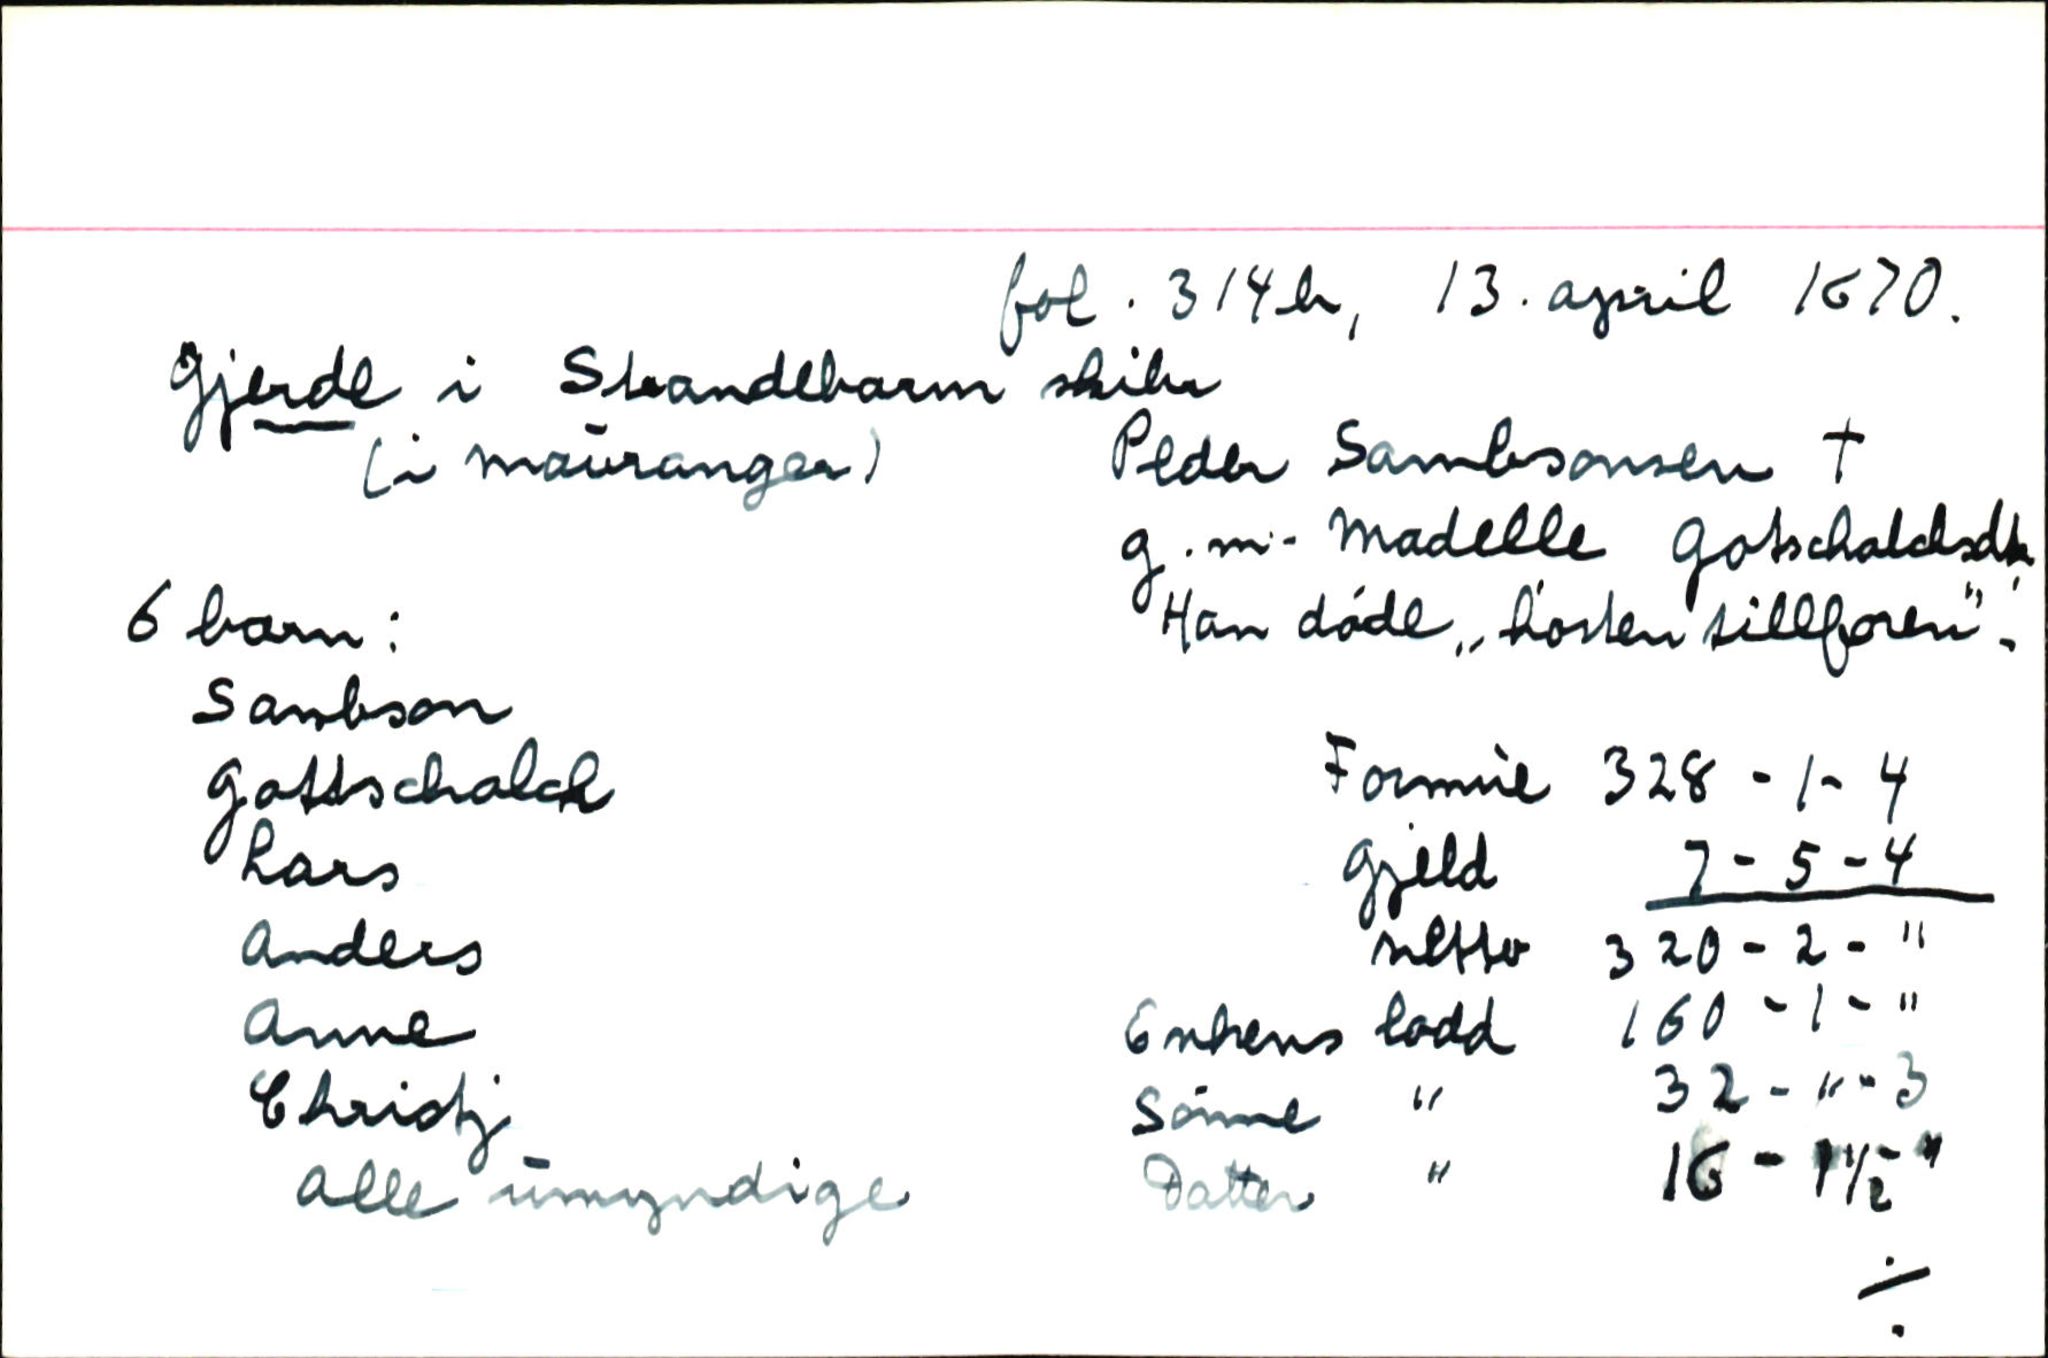 fol. 314b, 13. april 1670.
Gjerde i Strandebarm skibr
(i Mauranger)
Peder Sambsonsen †
g.m. Madelle Gotschalchsdtr.
Han døde „høsten tillforen".
6 barn:
Sambson
Gottschalch
Lars
Anders
Anne
Christj
Alle umyndige
Formue 328 - 1 - 4
Gjeld 7 - 5 - 4
netto 320 - 2 - "
Enkens lodd 160 - 1 - "
Sønne " 32 - " - 3
Datter " 16 - 1 1/2 "